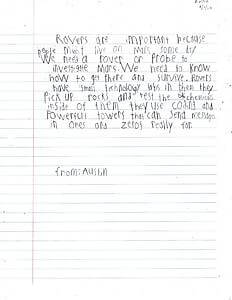 Rovers are important because
people might live on Mars some day
We need a rover or Probe to
investigate Mars. We need to know
how to get there and survive. Rovers
have small technology labs in them they
Pick up rocks and test the chemicals
inside of them they use coding and
Powerful towers that can send messages
in ones and zeros really far.
from: Austin